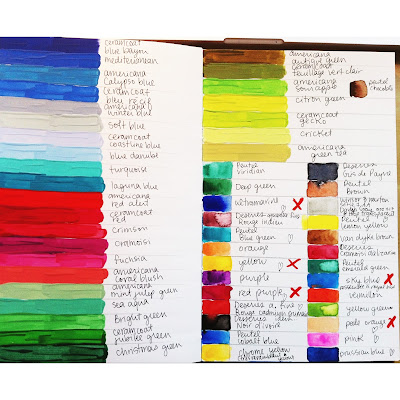 ceramcoat
blue bayou
mediterranean
americana
calypso blue
ceramcoat
bleu récif
americana
winter blue
soft blue
ceramcoat
coastline blue
blue danube
turquoise
laguna blue
americana
red alert
ceramcoat
red
crimson
cramoisi
fuchsia
americana
coral blush
americana
mint julep green
sea aqua
Bright green
ceramcoat
jubilee green
christmas green
americana
antique green
ceramcoat
feuillage vert clair
americana
sour apple
citron green
ceramcoat
gecko
cricket
americana
green tea
pentel
chocolate
Pentel
Viridian
Deep green
Ultramarine
Deserres
Rouge indien
Pentel
blue green
orange
yellow
purple
red purple
Deserres a. fine
Rouge cadmium
Deserres
Noir d'ivoire
Pentel
Cobalt blue
chrome yellow
Deserres
Gris de Payne
Pentel
Brown
Winsor & Newton
Pentel
lemon yellow
van dyke brown
Deserres
Cramoisi alizarin
Pentel
emerald green
sky blue
vermilion
yellow green
pale orange
pink
prussian blue